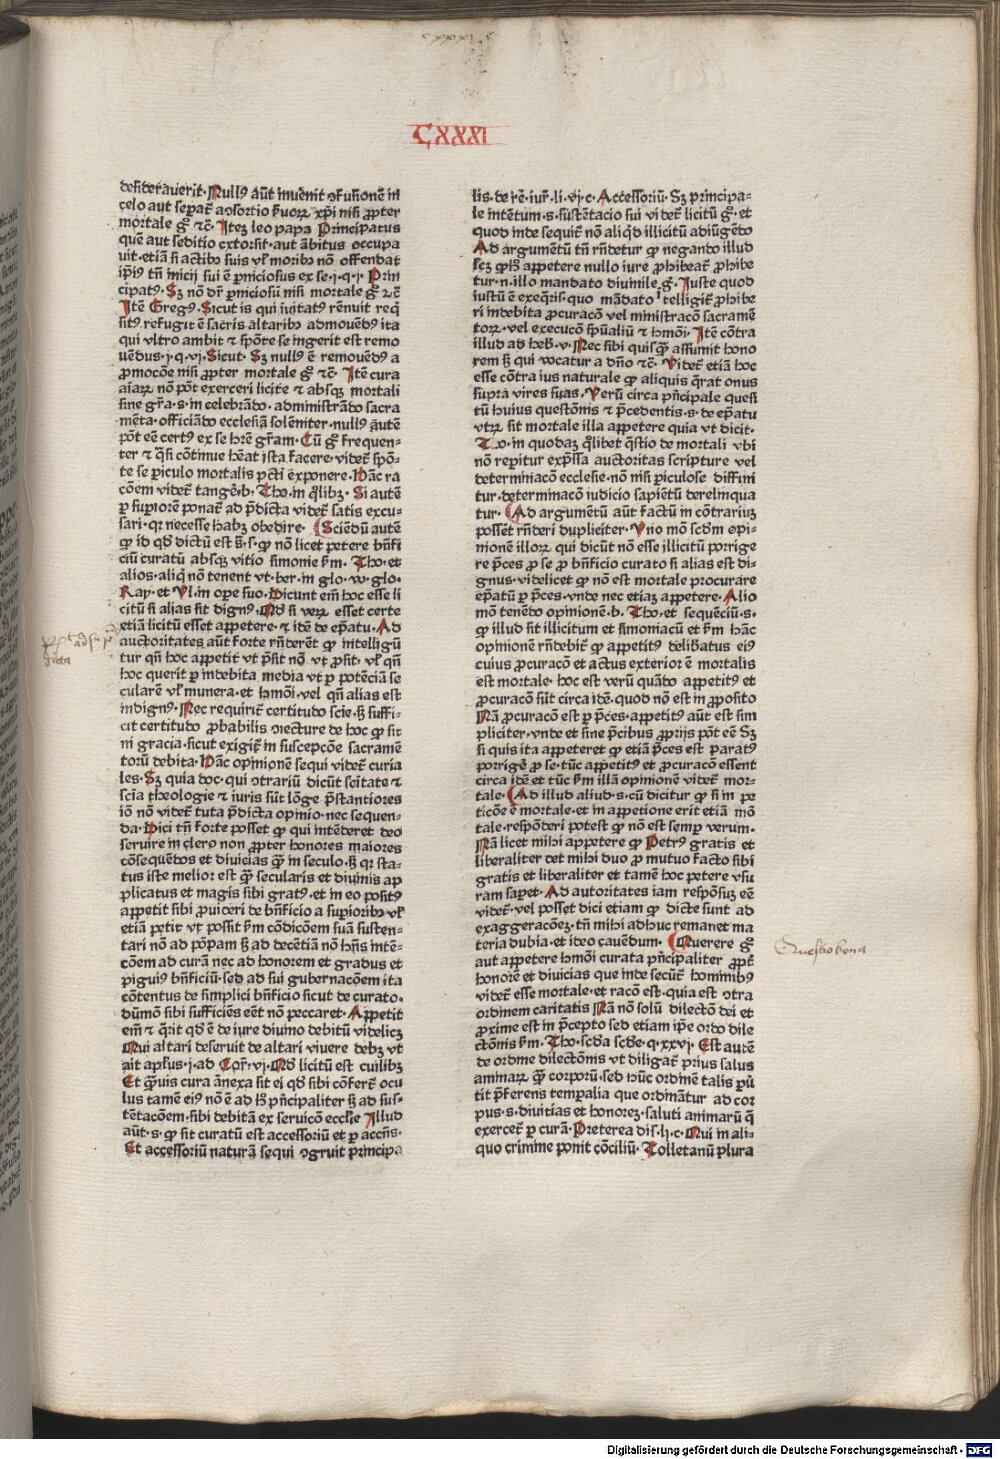 CXXXI
desiderauerit. Nullꝰ aūt inuenit ꝯfusionē in
celo aut sepat̄ a ꝯsortio bn̄oꝝ xp̄i nisi ꝓpter
mortale gͦ ⁊c̄. Itez leo papa Principatus
quē aut seditio extorsit. aut ābitus occupa
uit. etiā si actibꝫ suis vl̓ moribꝫ nō offendat
ip̄iꝰ tn̄ inicij sui ē ꝑniciosus ex se. i. q. i. Prin
cipatꝰ. Sꝫ nō dr̄ ꝑniciosū nisi mortale gͦ ⁊c̄
Itē Gregꝰ. Sicut is qui īuitatꝰ rēnuit req̄
sitꝰ refugit ē sacris altaribꝫ admouēdꝰ ita
qui vltro ambit ⁊ spōte se ingerit est remo
uēdus. i. q. vi. Sicut. Sꝫ nullꝰ ē remouēdꝰ a
ꝓmocōe nisi ꝓpter mortale gͦ ⁊c̄. Itē cura
aīaꝝ nō pōt exerceri licite ⁊ absqꝫ mortali
sine gr̄a. s. in celebrādo. administrādo sacra
mēta. officiādo ecclesiā solēniter. nullꝰ autē
pōt eē certꝰ ex se hr̄e gr̄am. Cū gͦ frequen-
ter ⁊ q̄si cōtinue heāt ista facere. videt̄ spō-
te se periculo mortalis pctī exponere. Hāc ra
cōem videt̄ tangē. b. Tho. in q̄libꝫ. Si autē
ꝑ suꝑiorē ponat̄ ad p̄dicta videt̄ satis excu-
sari. qꝛ necesse habꝫ obedire. Sciēdū autē
ꝙ id qd̄ dictū est s̄. s. ꝙ nō licet petere bn̄fi
ciū curatū absqꝫ vitio simonie bm̄. Tho. et
alios. aliq̄ nō tenent vt. ber. in glo. w. glo.
Ray. et Vl. in oꝑe suo. Dicunt em̄ hoc esse li
citū si alias sit dignꝰ. Qd̄ si veꝝ esset certe
etiā licitū esset appetere. ⁊ idē de ep̄atu. Ad
auctoritates aūt forte rn̄deret̄ ꝙ intelligū
tur qn̄ hoc appetit vt p̄sit nō vt ꝓsit. vl̓ qn̄
hoc querit ꝑ indebita media vt ꝑ potēciā se
cularē vl̓ munera. et hmōi. vel qn̄ alias est
indignꝰ. Nec requirit̄ certitudo scie. sꝫ suffi-
cit certitudo ꝓbabilis ꝯiecture de hoc ꝙ sit
in gracia. sicut exigit̄ in suscepcōe sacramē
torū debita. Hāc opinionē sequi videt̄ curia
les. Sꝫ quia doc. qui ꝯtrariū dicūt scītate ⁊
scīa theologie ⁊ iuris sūt lōge p̄stantiores
iō nō videt̄ tuta p̄dicta opinio. nec sequen-
da. Dici tn̄ forte posset ꝙ qui intēderet deo
seruire in clero non ꝓpter honores maiores
cōsequēdos et diuicias q̄ in seculo. sꝫ qꝛ sta-
tus iste melior est q̄ secularis et diuinis ap
plicatus et magis sibi gratꝰ. et in eo positꝰ
appetit sibi ꝓuideri de bn̄ficio a suꝑioribꝫ vl̓
etiā petit vt possit bm̄ cōdicōem suā susten-
tari nō ad pōpam sꝫ ad decētiā nō hn̄s intē-
cōem ad curā nec ad honorem et gradus et
piguiꝰ bn̄ficiū. sed ad sui gubernacōem ita
cōtentus de simplici bn̄ficio sicut de curato.
dūmō sibi sufficiēs eēt nō peccaret. Appetit
em̄ ⁊ q̄rit qd̄ ē de iure diuino debitū videlicꝫ
Qui altari deseruit de altari viuere debꝫ vt
ait apl̓us. i. ad Cor̄. vi. Qd̄ licitū est cuilibꝫ
Et q̄uis cura ānexa sit ei qd̄ sibi cōfert̄ ocu
lus tamē eiꝰ nō ē ad hͦ p̄ncipaliter sꝫ ad sus-
tētacōem. sibi debitā ex seruicō eccl̓ie Illud
aūt. s. ꝙ sit curatū est accessoriū et ꝑ accn̄s.
Et accessoriū naturā sequi ꝯgruit principa
lis. de re. iur̄. li. vj. c. Accessoriū. Sꝫ principa-
le intētum. s. sustētacio sui videt̄ licitū gͦ. et
quod inde sequit̄ nō aliqd̄ illicitū adiūgēdo
Ad argumētū tn̄ rn̄detur ꝙ negando illud
scꝫ ꝙ hͦ appetere nullo iure ꝓhibeat̄ ꝓhibe
tur. n. illo mandato diuinile gͦ. Iuste quod
iustū ē exeq̄ris. quo mādato ītelligit̄ ꝓhibe
ri indebita ꝓcuracō vel ministracō sacramē
toꝝ. vel execucō spūaliū ⁊ hmōi. Itē cōtra
illud ad heb̄. v. Nec sibi quisq̄ assumit hono
rem sꝫ qui vocatur a dn̄o ⁊c̄. Videt̄ etiā hoc
esse cōtra ius naturale ꝙ aliquis q̄rat onus
supra vires suas. Verū circa p̄ncipale quesi
tū huius questōnis ⁊ p̄cedentis. s. de ep̄atu
vtꝝ sit mortale illa appetere quia vt dicit.
Tho. in quodaꝫ q̄libet q̄stio de mortali vbi
nō reꝑitur exp̄ssa auctoritas scripture vel
determinacō ecclesie. nō nisi ꝑiculose diffini
tur. determinacō iudicio sapiētū derelinqua
tur. Ad argumētū aūt factū in cōtrariuꝫ
posset rn̄deri dupliciter. Vno mō scd̄m opi-
nionē illoꝝ qui dicūt nō esse illicitū porrige
re p̄ces ꝓ se ꝓ bn̄ficio curato si alias est di-
gnus. videlicet ꝙ nō est mortale procurare
ep̄atū ꝑ p̄ces. vnde nec etiaꝫ appetere. Alio
mō tenēdo opinionē. b. Tho. et sequēciū. s.
ꝙ illud sit illicitum et simomacū et bm̄ hāc
opinionē rn̄debit̄ ꝙ appetitꝰ deliƀatus eiꝰ
cuius ꝓcuracō et actus exterior ē mortalis
est mortale. hoc est verū quādo appetitꝰ et
ꝓcuracō sūt circa idē. quod nō est in ꝓposito
Nā ꝓcuracō est ꝑ p̄ces. appetitꝰ aūt est sim
pliciter. vnde et sine p̄cibus ꝓprijs pōt eē Sꝫ
si quis ita appeteret ꝙ etiā p̄ces est paratꝰ
porrigē ꝓ se. tūc appetitꝰ et ꝓcuracō essent
circa idē et tūc bm̄ illā opinionē videt̄ mor-
tale. Ad illud aliud. s. cū dicitur ꝙ si in pe
ticōe ē mortale. et in appetione erit etiā mō
tale. respōderi potest ꝙ nō est semꝑ verum.
Nā licet mihi appetere ꝙ Petrꝰ gratis et
liberaliter det mihi duo ꝓ mutuo facto sibi
gratis et liberaliter et tamē hoc petere vsu
ram sapet. Ad autoritates iam respōsuꝫ eē
videt̄. vel posset dici etiam ꝙ dicte sunt ad
exaggeracōeꝫ. tn̄ mihi adhuc remanet ma
teria dubia. et ideo cauēdum. Querere gͦ
aut appetere hmōi curata p̄ncipaliter ꝓpt̄
honorē et diuicias que inde secūt̄ hominibꝰ
videt̄ esse mortale. et racō est. quia est ꝯtra
ordinem caritatis Nā nō solū dilectō dei et
ꝓxime est in p̄cepto sed etiam ip̄e ordo dile
ctōnis bm̄. Tho. scd̄a scd̄e. q. xxvj. Est autē
de ordine dilectōnis vt diligat̄ prius salus
aminaꝝ q̄ corporū. sed hūc ordinē talis ꝑuer
tit p̄ferens temporalia que ordinātur ad cor
pus. s. diuitias et honoreꝫ. saluti animarū q̄
exercet̄ ꝑ curā. Preterea dis. li. c. Qui in ali-
quo crimine ponit cōciliū. Tolletanū plura
Questio bona
Digitalisierung gefördert durch die Deutsche Forschungsgemeinschaft - DFG